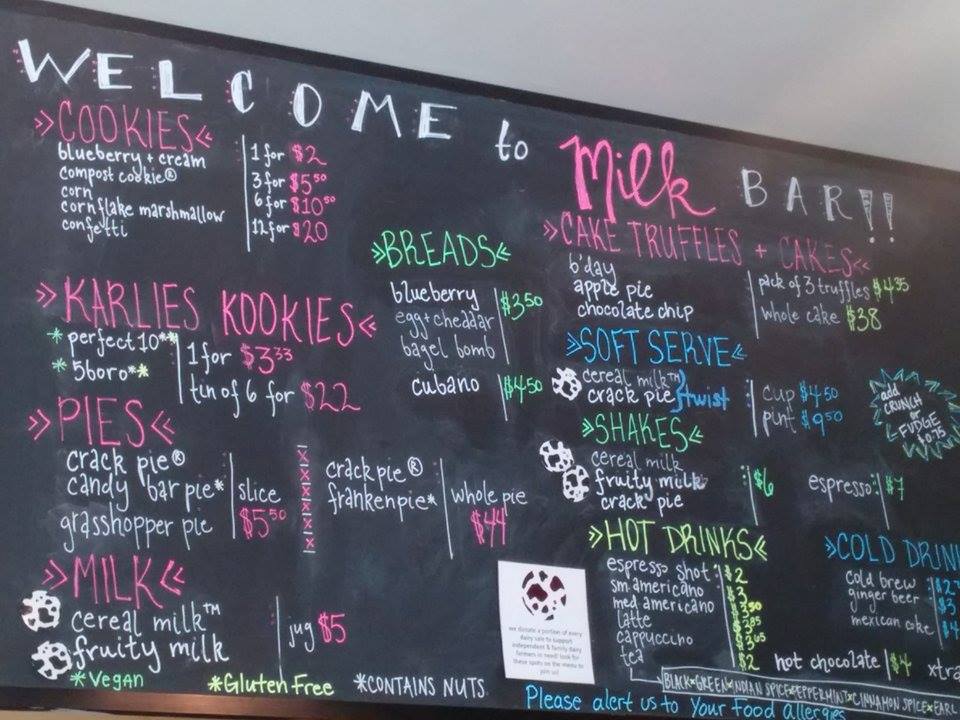 WELCOME to Milk BAR!!
»COOKIES«
blueberry + cream
compost cookie®
corn
cornflake marshmallow
confetti
1 for $2
3 for $5⁵⁰
6 for $10⁵⁰
12 for $20
»KARLIES KOOKIES«
*perfect 10**
*5boro**
1 for $3³³
tin of 6 for $22
»PIES«
crack pie®
candy bar pie*
grasshopper pie
slice
$5⁵⁰
x
x
x
x
x
x
crack pie®
frankenpie*
whole pie
$44
»MILK«
cereal milk™
fruity milk
jug $5
*Vegan *Gluten Free *CONTAINS NUTS
»BREADS«
blueberry
egg + cheddar
bagel bomb
$3⁵⁰
cubano $4⁵⁰
»CAKE TRUFFLES + CAKES«
b'day
apple pie
chocolate chip
pack of 3 truffles $4³⁵
whole cake $38
»SOFT SERVE«
cereal milk™
crack pie
twist
cup $4⁵⁰
pint $9⁵⁰
add
CRUNCH
or
FUDGE
$0.75
»SHAKES«
cereal milk
fruity milk
crack pie
$6
espresso: $7
»HOT DRINKS«
espresso shot: $2
sm americano
med americano
latte
cappuccino
tea $2
hot chocolate $4 xtra
BLACK*GREEN*INDIAN SPICE*PEPPERMINT*CINNAMON SPICE*EARL
»COLD DRIN
cold brew
ginger beer $3
mexican coke $4
we donate a portion of every
dairy sale to support
independent & family dairy
farmers in need! look for
these spots on the menu to
join us!
Please alert us to Your food allergies